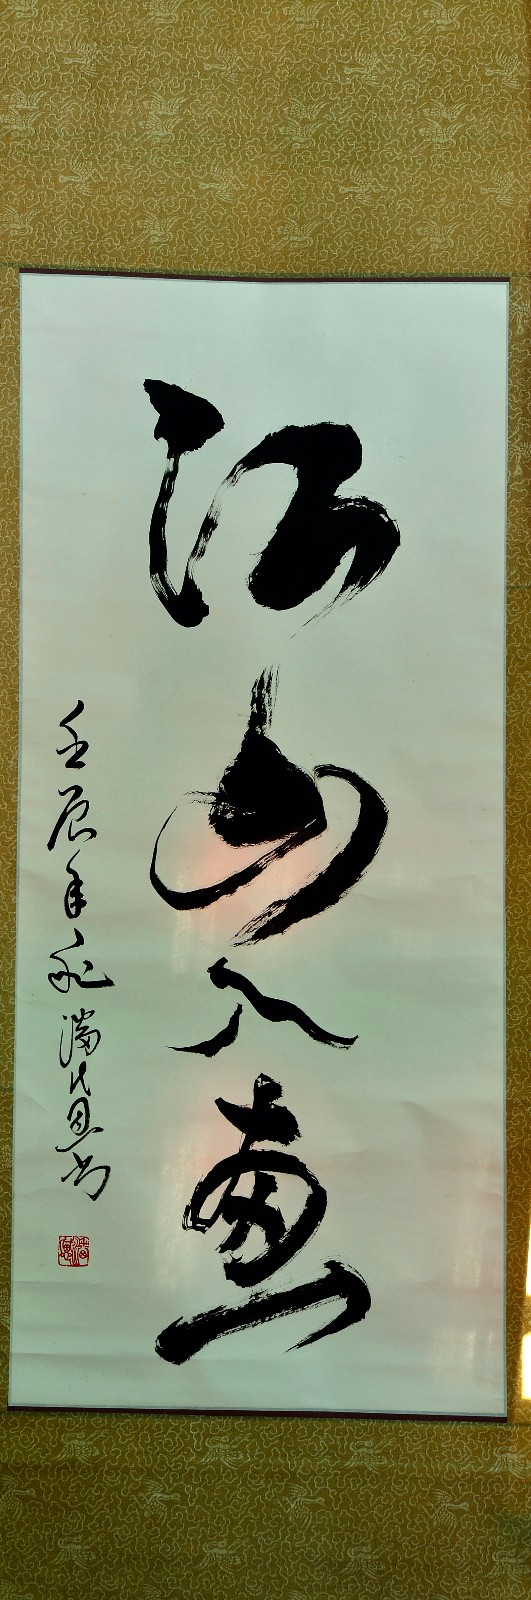 江山入画
壬辰年秋潘代恩书